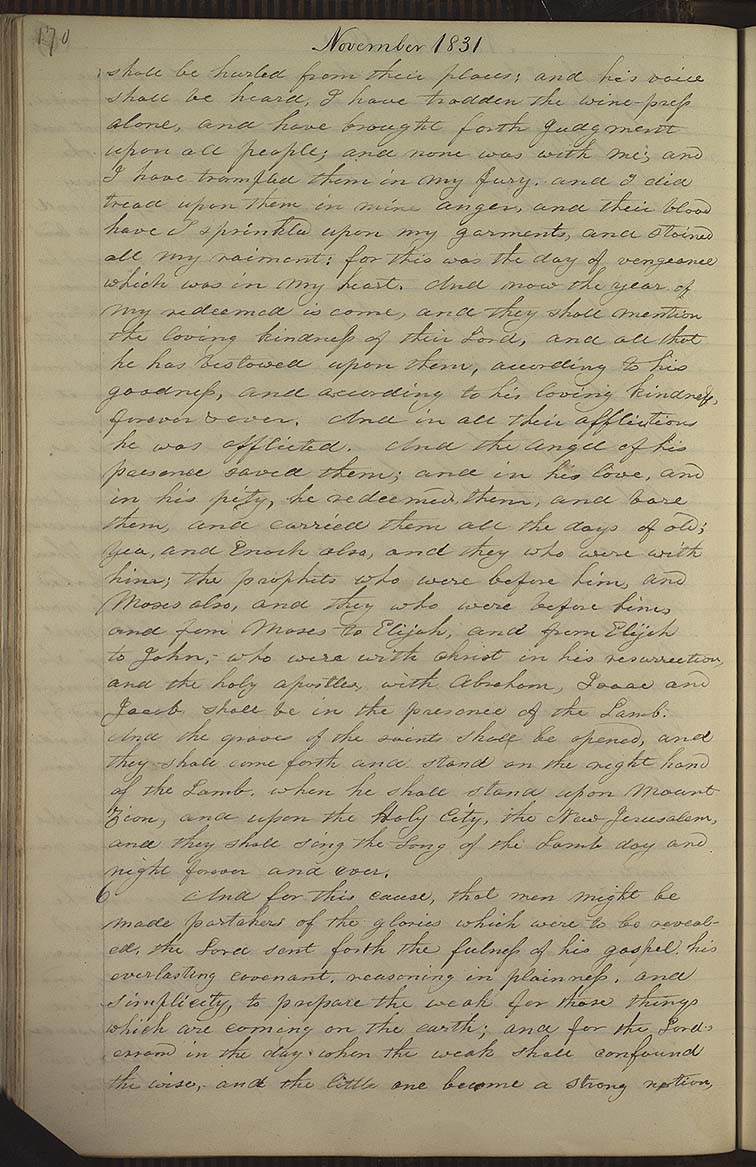 170
November 1831
shall be hurled from their places; and his voice
shall be heard, I have trodden the wine-press
alone, and have brought forth Judgment
upon all people; and none was with me; and
I have trampled them in my fury. and I did
tread upon them in mine anger, and their blood
have I sprinkled upon my garments, and stained
all my raiment: for this was the day of vengeance
which was in my heart. And now the year of
my redeemed is come, and they shall mention
the loving kindness of their Lord, and all that
he has bestowed upon them, according to his
goodness, and according to his loving kindness,
forever & ever. And in all their afflictions
he was afflicted. And the angel of his
presence saved them; and in his love, and
in his pity, he redeemed them, and bare
them, and carried them all the days of old;
Yea, and Enoch also, and they who were with
him; the prophets who were before him, and
Moses also, and they who were before him,
and from Moses to Elijah, and from Elijah
to John, who were with christ in his resurrection,
and the holy apostles, with Abraham, Isaac and
Jacob shall be in the presence of the Lamb.
And the graves of the saints shall be opened, and
they shall come forth and stand on the right hand
of the Lamb. when he shall stand upon Mount
Zion, and upon the Holy City, the New Jerusalem,
and they shall sing the Song of the Lamb day and
night forever and ever.
6 And for this cause, that men might be
made partakers of the glories which were to be reveal-
ed, the Lord sent forth the fulness of his gospel. his
everlasting covenant, reasoning in plainness, and
simplicity, to prepare the weak for those things
which are coming on the earth; and for the Lord's
errand in the day when the weak shall confound
the wise, and the little one become a strong nation,